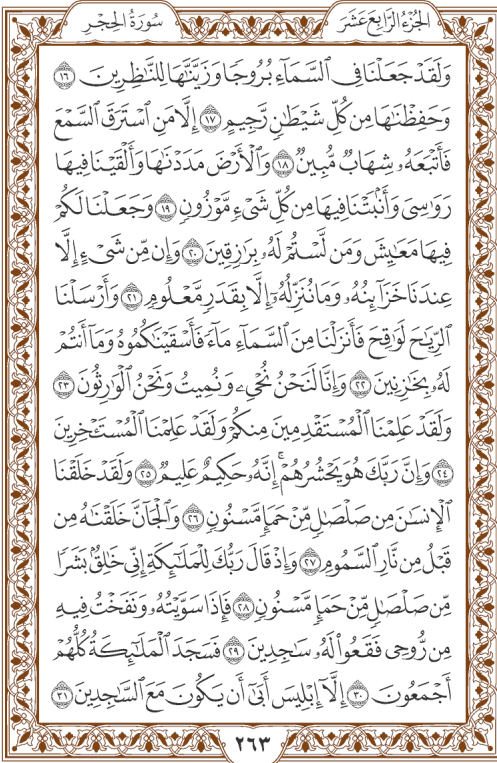 الجُزْءُ الرَّابِعَ عَشَرَ
سُورَةُ الحِجْرِ
وَلَقَدْ جَعَلْنَا فِي ٱلسَّمَآءِ بُرُوجًا وَزَيَّنَّٰهَا لِلنَّٰظِرِينَ ١٦
وَحَفِظْنَٰهَا مِن كُلِّ شَيْطَٰنٍ رَّجِيمٍ ١٧ إِلَّا مَنِ ٱسْتَرَقَ ٱلسَّمْعَ
فَأَتْبَعَهُۥ شِهَابٌ مُّبِينٌ ١٨ وَٱلْأَرْضَ مَدَدْنَٰهَا وَأَلْقَيْنَا فِيهَا
رَوَٰسِيَ وَأَنۢبَتْنَا فِيهَا مِن كُلِّ شَيْءٍ مَّوْزُونٍ ١٩ وَجَعَلْنَا لَكُمْ
فِيهَا مَعَٰيِشَ وَمَن لَّسْتُمْ لَهُۥ بِرَٰزِقِينَ ٢٠ وَإِن مِّن شَيْءٍ إِلَّا
عِندَنَا خَزَآئِنُهُۥ وَمَا نُنَزِّلُهُۥٓ إِلَّا بِقَدَرٍ مَّعْلُومٍ ٢١ وَأَرْسَلْنَا
ٱلرِّيَٰحَ لَوَٰقِحَ فَأَنزَلْنَا مِنَ ٱلسَّمَآءِ مَآءً فَأَسْقَيْنَٰكُمُوهُ وَمَآ أَنتُمْ
لَهُۥ بِخَٰزِنِينَ ٢٢ وَإِنَّا لَنَحْنُ نُحْيِۦ وَنُمِيتُ وَنَحْنُ ٱلْوَٰرِثُونَ ٢٣
وَلَقَدْ عَلِمْنَا ٱلْمُسْتَقْدِمِينَ مِنكُمْ وَلَقَدْ عَلِمْنَا ٱلْمُسْتَـْٔخِرِينَ
٢٤ وَإِنَّ رَبَّكَ هُوَ يَحْشُرُهُمْ ۚ إِنَّهُۥ حَكِيمٌ عَلِيمٌ ٢٥ وَلَقَدْ خَلَقْنَا
ٱلْإِنسَٰنَ مِن صَلْصَٰلٍ مِّنْ حَمَإٍ مَّسْنُونٍ ٢٦ وَٱلْجَآنَّ خَلَقْنَٰهُ مِن
قَبْلُ مِن نَّارِ ٱلسَّمُومِ ٢٧ وَإِذْ قَالَ رَبُّكَ لِلْمَلَٰٓئِكَةِ إِنِّي خَٰلِقٌۢ بَشَرًا
مِّن صَلْصَٰلٍ مِّنْ حَمَإٍ مَّسْنُونٍ ٢٨ فَإِذَا سَوَّيْتُهُۥ وَنَفَخْتُ فِيهِ
مِن رُّوحِي فَقَعُوا۟ لَهُۥ سَٰجِدِينَ ٢٩ فَسَجَدَ ٱلْمَلَٰٓئِكَةُ كُلُّهُمْ
أَجْمَعُونَ ٣٠ إِلَّآ إِبْلِيسَ أَبَىٰٓ أَن يَكُونَ مَعَ ٱلسَّٰجِدِينَ ٣١
٢٦٣